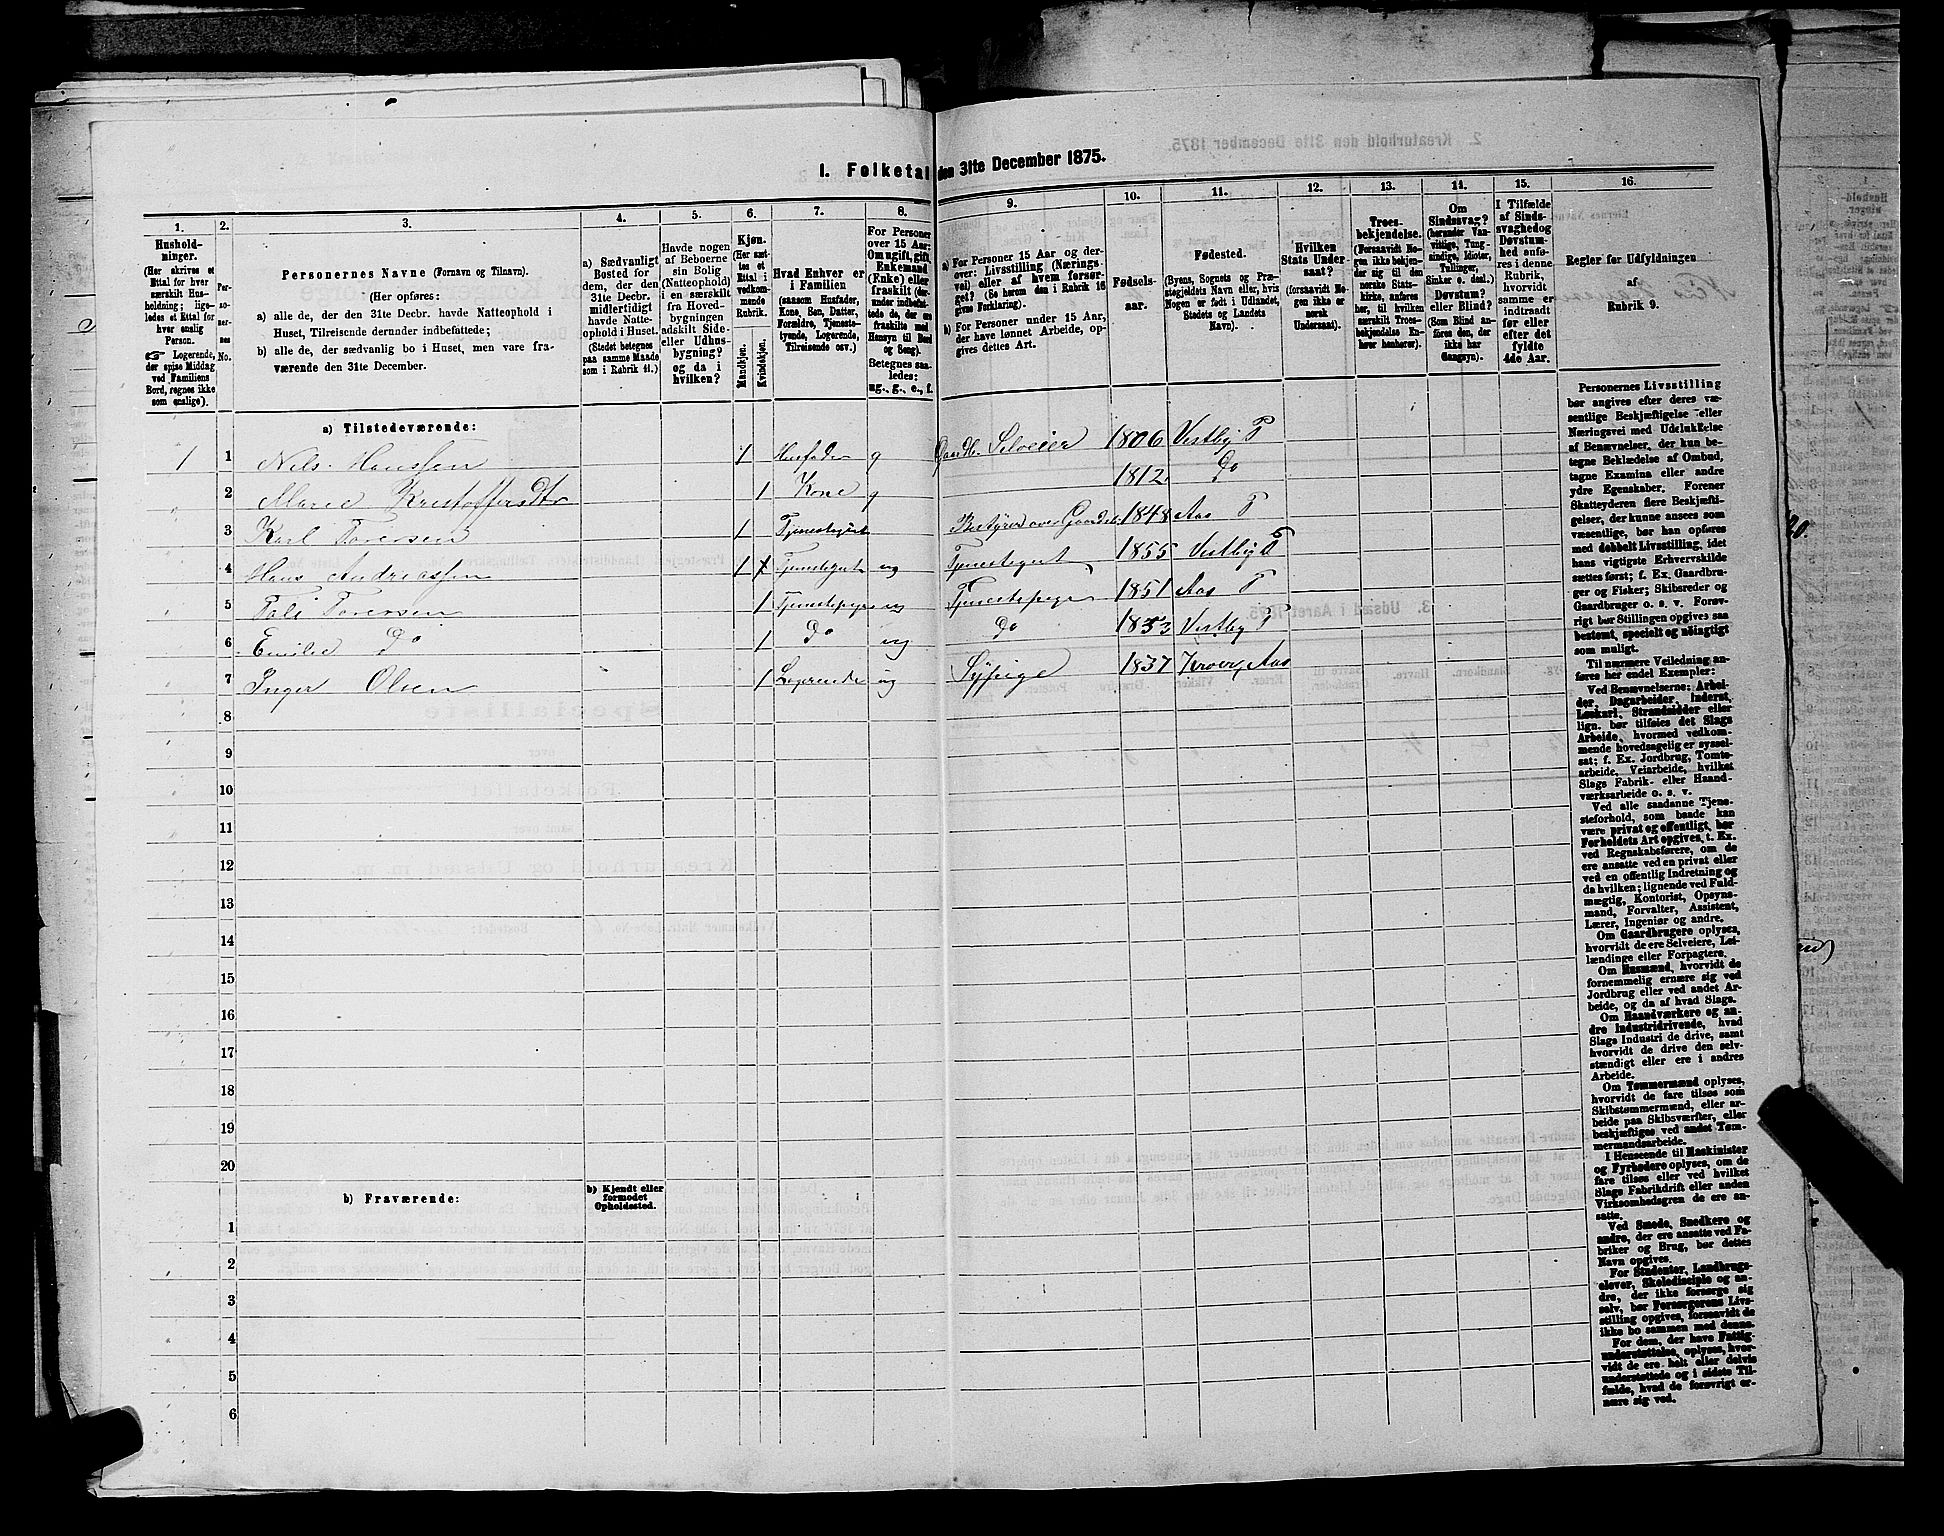 I. Folketal den 31te December 1875.
1. 2. 3. 4. 5. 6. 7. 8. 9. 10. 11. 12. 13. 14. 15. 16.
Hushold-
ninger.
(Her skrives et
Ettal for hver
særskilt Hus-
holdning; lige-
ledes et Ettal for
hver enslig
Person.
☞ Logerende,
der spise Middag
ved Familiens
Bord, regnes ikke
som enslige).
Per-
so-
ner-
nes
No.
Personernes Navne (Fornavn og Tilnavn).
(Her opføres:
a) alle de, der den 31te Decbr. havde Natteophold i
Huset, Tilreisende derunder indbefattede;
b) alle de, der sædvanlig bo i Huset, men vare fra-
værende den 31te December.
a) Sædvanligt
Bosted for
dem, der den
31te Decbr.
midlertidigt
havde Natte-
ophold i Huset.
(Stedet betegnes
paa samme Maade
som i Rubrik 11.)
Havde nogen
af Beboerne
sin Bolig
(Natteophold)
i en særskilt
fra Hoved-
bygningen
adskilt Side-
eller Udhus-
bygning?
og da i
hvilken?
Kjøn.
(Her sæt-
tes et
Ettal i
vedkom-
mende
Rubrik.
Mandkjøn.
Kvindekjøn.
Hvad Enhver er
i Familien
(saasom Husfader,
Kone, Søn, Datter,
Forældre, Tjeneste-
tyende, Logerende,
Tilreisende osv.)
For Personer
over 15 Aar:
Om ugift, gift,
Enkemand
(Enke) eller
fraskilt
Betegnes saa-
ledes:
ug., g., e., f.
a) For Personer 15 Aar og der-
over: Livsstilling (Nærings-
vei) eller af hvem forsør-
get? (Se herom den i Rubrik 16
givne Forklaring).
b) For Personer under 15 Aar,
der have lønnet Arbeide, op-
gives dettes Art.
Fødsels-
aar.
Fødested.
(Byens, Sognets og Præ-
stegjeldets Navn eller, hvis
Nogen er født i Udlandet,
Stedets og Landets
Navn).
Hvilken
Stats Under-
saat?
(forsaavidt No-
gen ikke er
norsk
Undersaat).
Troes-
bekjendelse.
(Forsaavidt No-
gen ikke bekjen-
der sig til den
norske Stats-
kirke, anføres
her, til hvilken
særskilt Troes-
bekjendelse En-
hver henhører).
Om
Sindssvag?
(herunder Van-
vittige, Tung-
sindige, Idioter,
Tullinger,
Sinker o. desl.)
Døvstum?
eller Blind?
(Som Blind an-
føres den, der
ikke har
Gangsyn).
I Tilfælde
af Sinds-
svaghed og
Døvstum-
hed anfø-
res i denne
Rubrik,
hvorvidt
samme er
indtraadt
før eller
efter det
fyldte
4de Aar.
Regler for Udfyldningen
af
Rubrik 9.
a) Tilstedeværende:
1 1 Nils Hanssen 1 Husfader g Gaardb. Selveier 1806 Vestby P
2 Marie Kristoffersdtr 1 Kone g 1812 Do
3 Karl Torersen 1 Tjenestegut Bestyrer over 1848 Aas P
4 Hans Andreassen 1 Tjenestegut ug Tjenestegut 1855 Vestby P
5 Torersen 1 Tjenestepige ug Tjenestepige 1851 Aas P
6 Emilie Do 1 Do ug Do 1853 Vestby P
7 Inger Olsen 1 Logerende ug Sypige 1837 Kroer, Aas
8
9
10
11
12
13
14
15
16
17
18
19
20
b) Fraværende:
b) Kjendt eller
formodet
Opholdssted.
1
2
3
4
5
6
Personernes Livsstilling
bør angives efter deres væ-
sentlige Beskjæftigelse eller
Næringsvei med Udelukkelse
af Benævnelser, der kun be-
tegne Beklædelse af Ombud,
tagne Examina eller andre
ydre Egenskaber. Forener
Skatteyderen flere Beskjæfti-
gelser, der kunne ansees som
væsentlige, bør han opføres
med dobbelt Livsstilling, idet
hans vigtigste Erhvervskilde
sættes først; f. Ex. Gaardbru-
ger og Fisker; Skibsreder og
Gaardbruger o. s. v. Forøv-
rigt bør Stillingen opgives saa
bestemt, specielt og nöiagtigt
som muligt.
Til nærmere Veiledning an-
føres her endel Exempler:
Ved Benævnelserne: Arbei-
der, Dagarbeider, Inderst,
Løskarl, Strandsidder eller
lign. bør tilføies det Slags
Arbeide, hvormed vedkom-
mende hovedsagelig er syssel-
sat; f. Ex. Jordbrug, Tomte-
arbeide, Veiarbeide, hvilket
Slags Fabrik- eller Haand-
værksarbeide o. s. v.
Ved alle saadanne Tjene-
steforhold, som baade kan
være privat og offentligt, bør
Forholdets Art opgives, t. Ex.
ved Regnskabsførere, om de
ere ansatte ved en privat eller
ved en offentlig Indretning og
da hvilken; lignende ved Fuld-
mægtig, Kontorist, Opsyns-
mand, Forvalter, Assistent,
Lærer, Ingeniør og andre.
Om Gaardbrugere oplyses,
hvorvidt de ere Selveiere, Lei-
lændinge eller Forpagtere.
Om Husmænd, hvorvidt de
fornemmelig ernære sig ved
Jordbrug eller ved andet Ar-
beide, og da af hvad Slags.
Om Haandværkere og an-
dre Industridrivende, hvad
Slags Industri de drive, samt
hvorvidt de drive den selv-
stændigt eller ere i andres
Arbeide.
Om Tømmermænd oplyses,
hvorvidt de fare tilsøs som
Skibstømmermænd, eller ar-
beide paa Skibsværfter, eller
beskjæftiges ved andet Tøm-
mermandsarbeide.
I Henseende til Maskinister
og Fyrbødere oplyses, om de
fare tilsøs eller ved hvilket
Slags Fabrikdrift eller anden
Virksomhedsgren de ere an-
satte.
Ved Smede, Snedkere og
andre, der ere ansatte ved Fa-
briker og Brug, bør dettes
Navn opgives.
For Studenter, Landbrugs-
elever, Skoledisciple og an-
dre, der ikke forsørge sig
selv, bør Forsørgerens Livs-
stilling opgives, forsaavidt de
ikke bo sammen med denne.
For dem, der have Fattig-
understøttelse, oplyses, hvor-
vidt de ere helt eller delvis
understøttede og i sidste Til-
fælde, hvad de forøvrigt er-
nære sig ved.